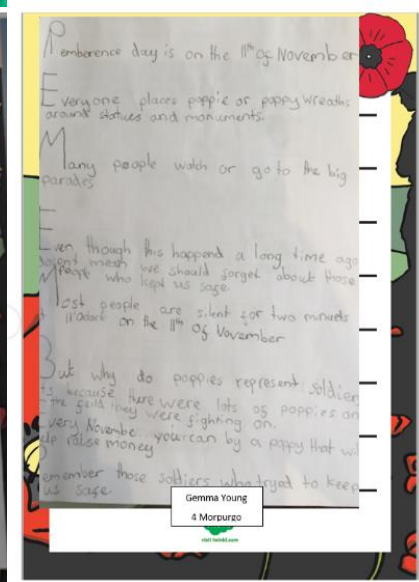 Rememberence day is on the 11th of November
Everyone places poppie or poppy wreaths
around statues and monuments.
Many people watch or go to the big
parades
Even though this happend a long time ago
dosent mean we should forget about those
people who kept us safe
Most people are silent for two minuets
11 oclock on the 11th of Vovember
But why do poppies represent soldier
because there were lots of poppies on
the feild they were fighting on.
Every Novembe you can by a poppy that wil
help raise money
Remember those soldiers who tryed to keep
us safe
Gemma Young
4 Morpurgo
visit twinkl.com